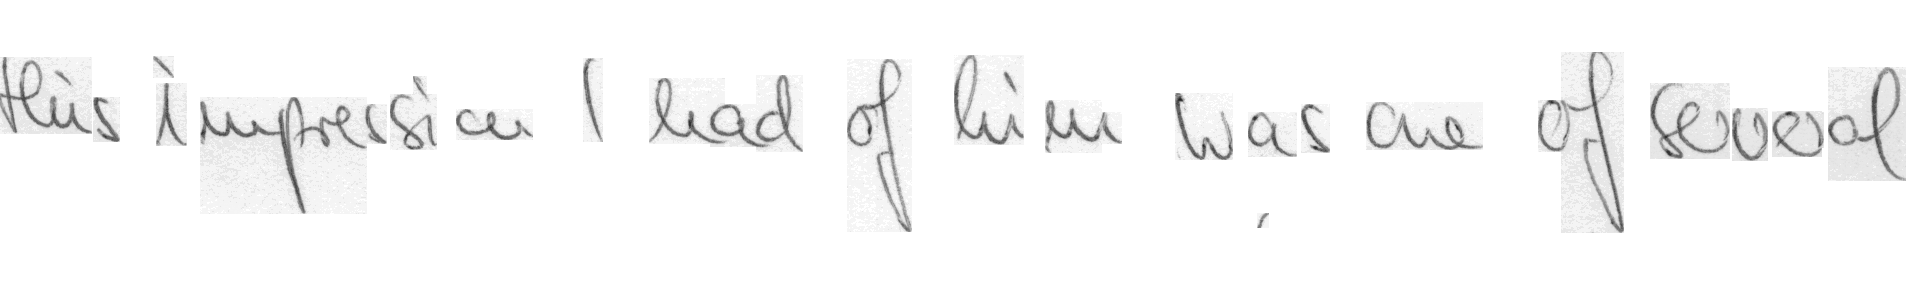 this impression I had of him was one of several